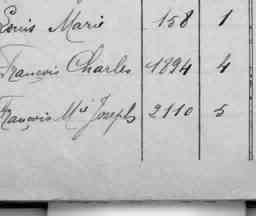 Louis Marie 158 1
François Charles 1894 4
François Mie Joseph 2110 5